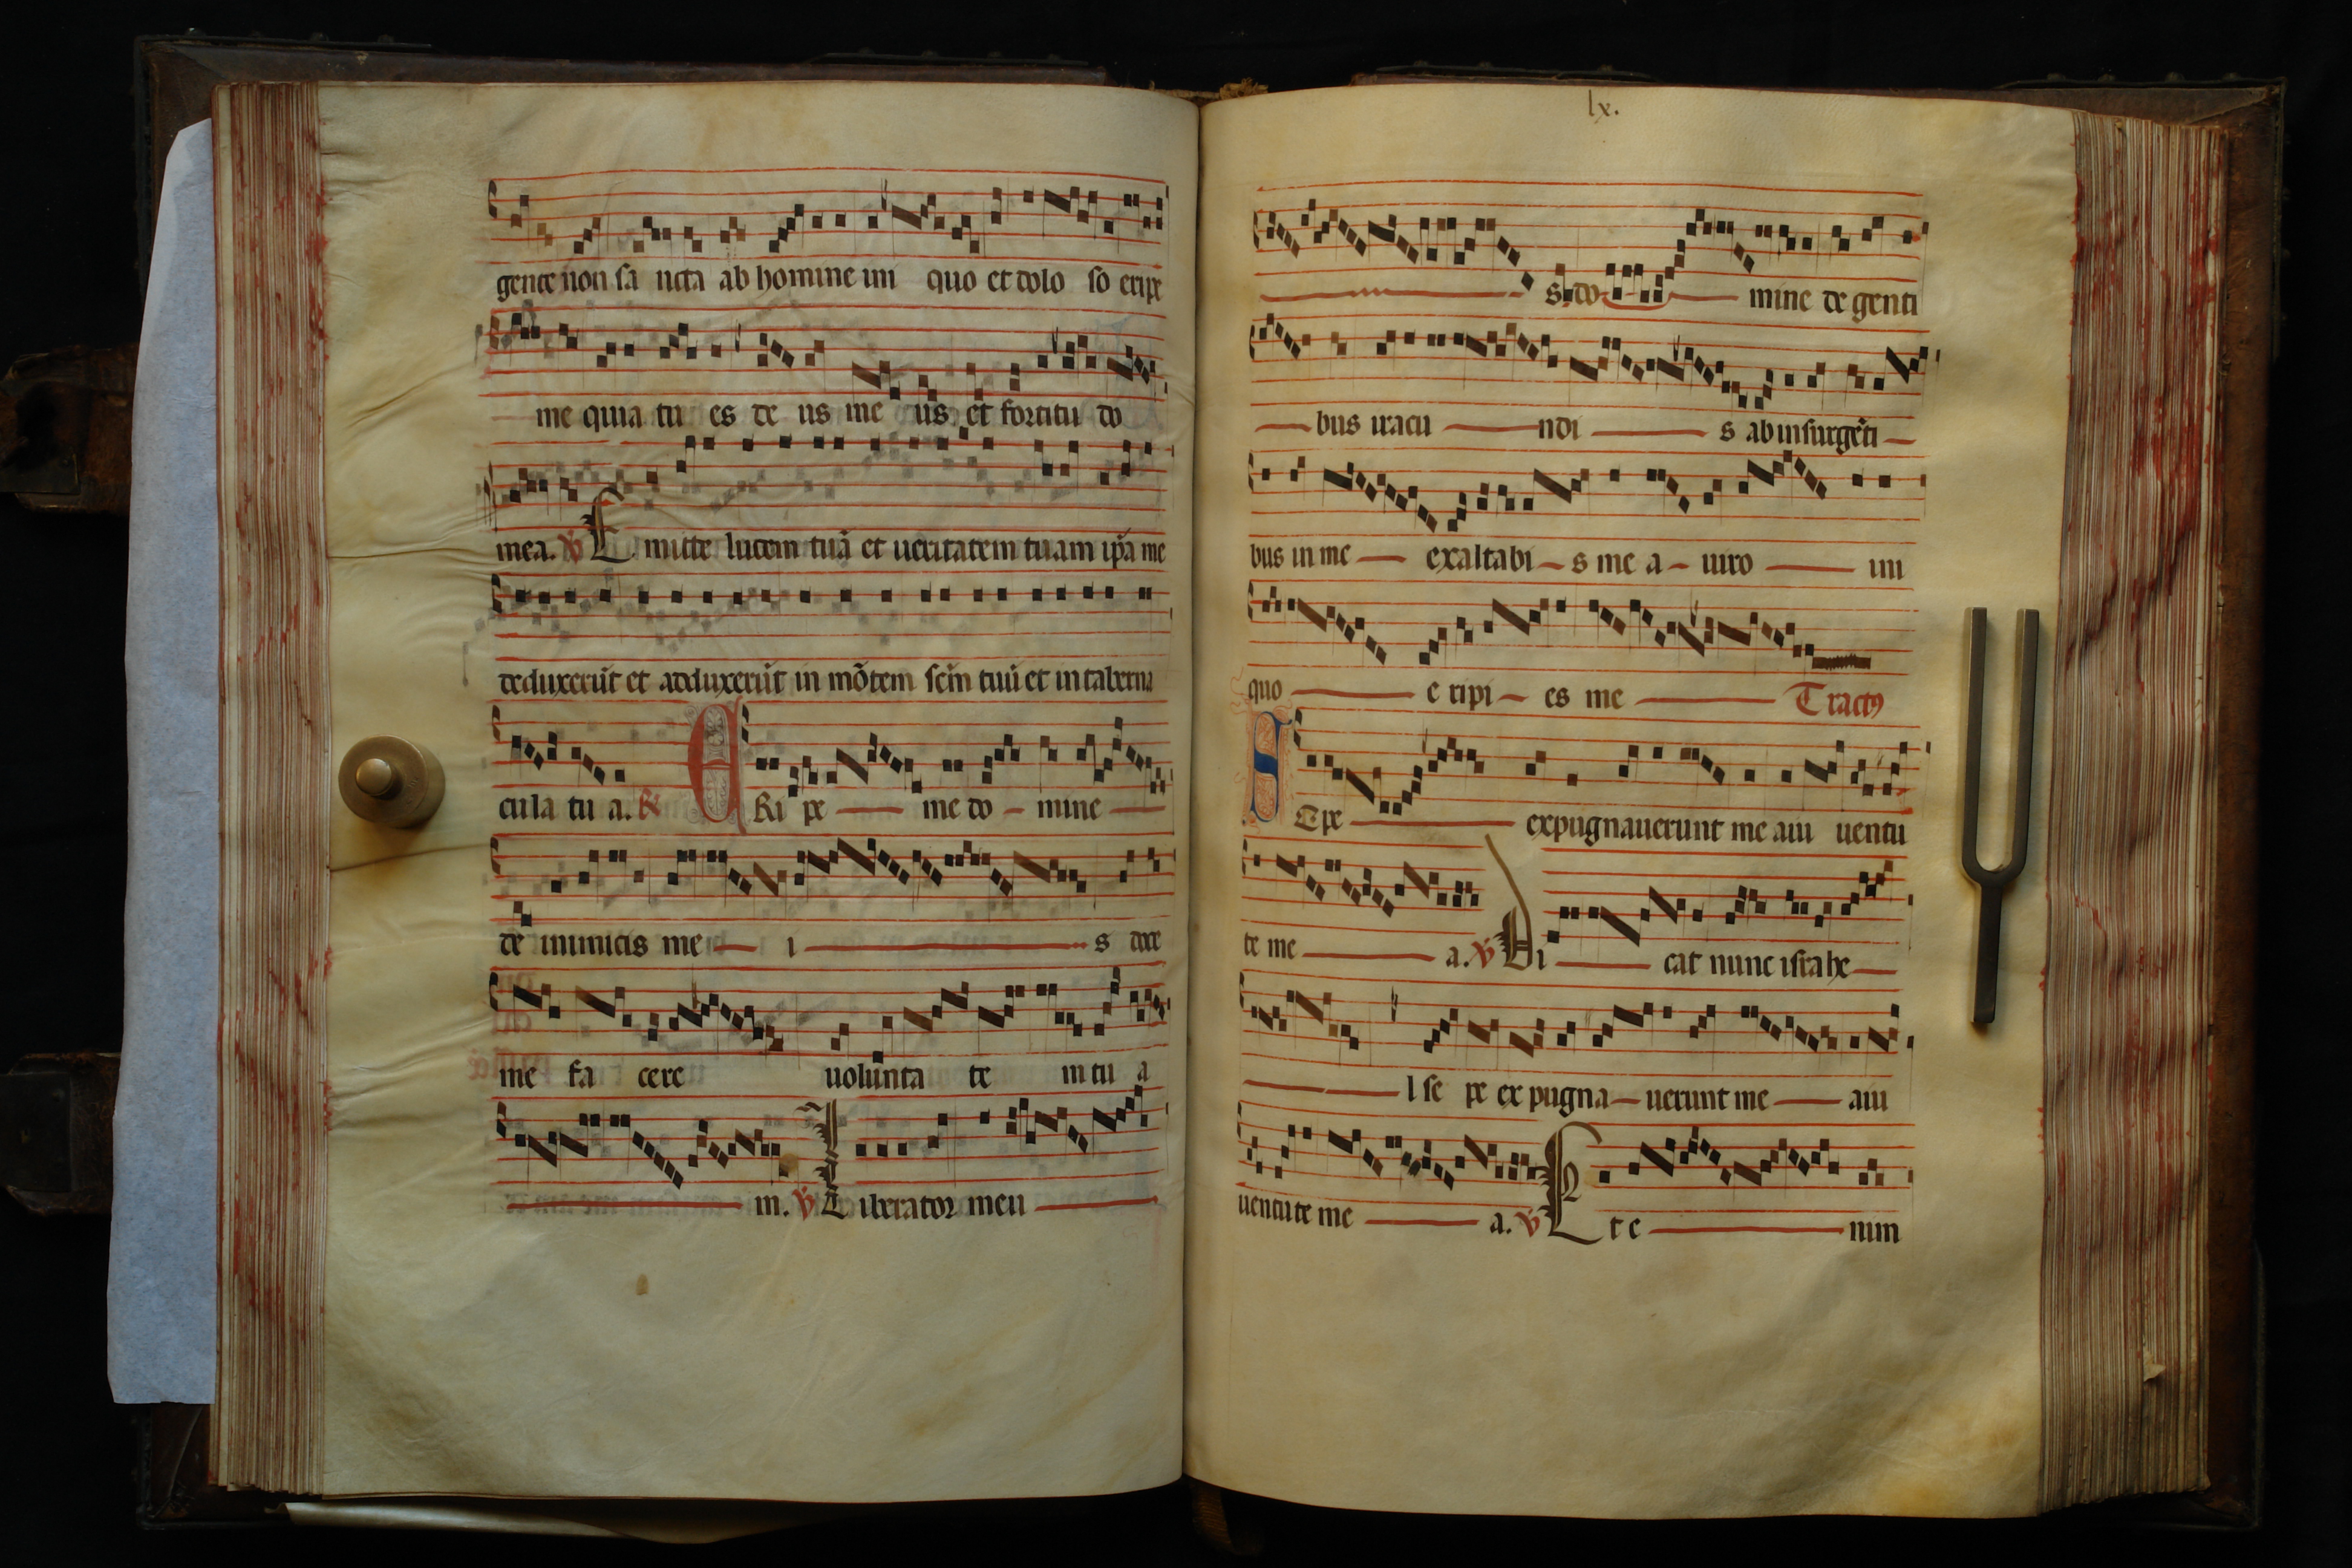 gente non sa ncta ab homine ini quo et dolo so eripe
me quia tu es de us me us et fortitu do
mea. ℣ E mitte lucem tuā et ueritatem tuam ip̄a me
deduxerūt et adduxerūt in mōtem sc̄m tuū et in taberna
cula tu a. ℟ E Ri pe me do mine
de inimicis me i s doce
me fa cere uolunta te m tu a
m. ℣ L iberator meu
lx.
s do mine de genti
bus iracu ndi s ab insurgēti
bus in me exaltabi s me a uiro ini
quo e ripi es me Tractꝰ
S Epe expugnauerunt me a iu uentu
te me a. ℣ Di cat nunc israhe
l se pe ex pugna uerunt me a iu
uentute me a. ℣ E t e nim